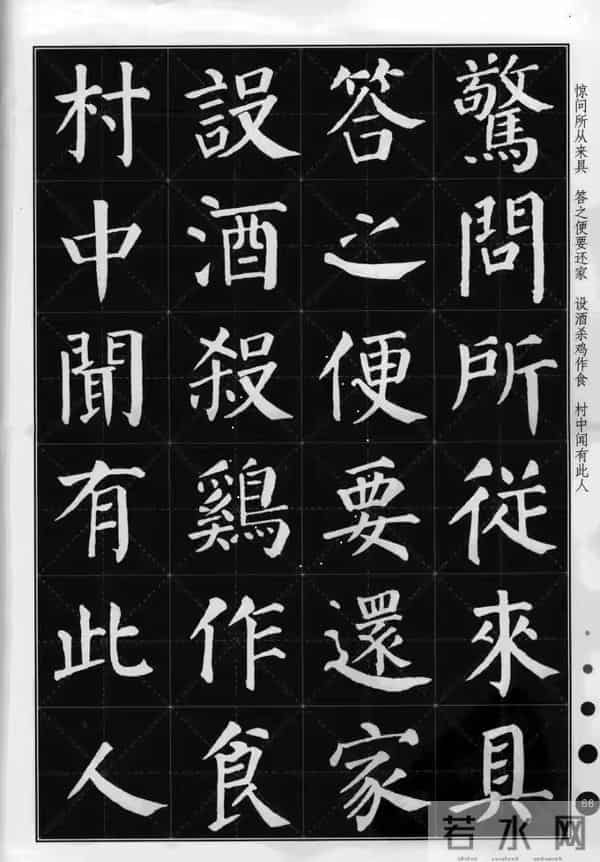 驚問所從來具
答之便要還家
設酒殺鷄作食
村中聞有此人
惊问所从来具 答之便要还家 设酒杀鸡作食 村中闻有此人
66
若水网